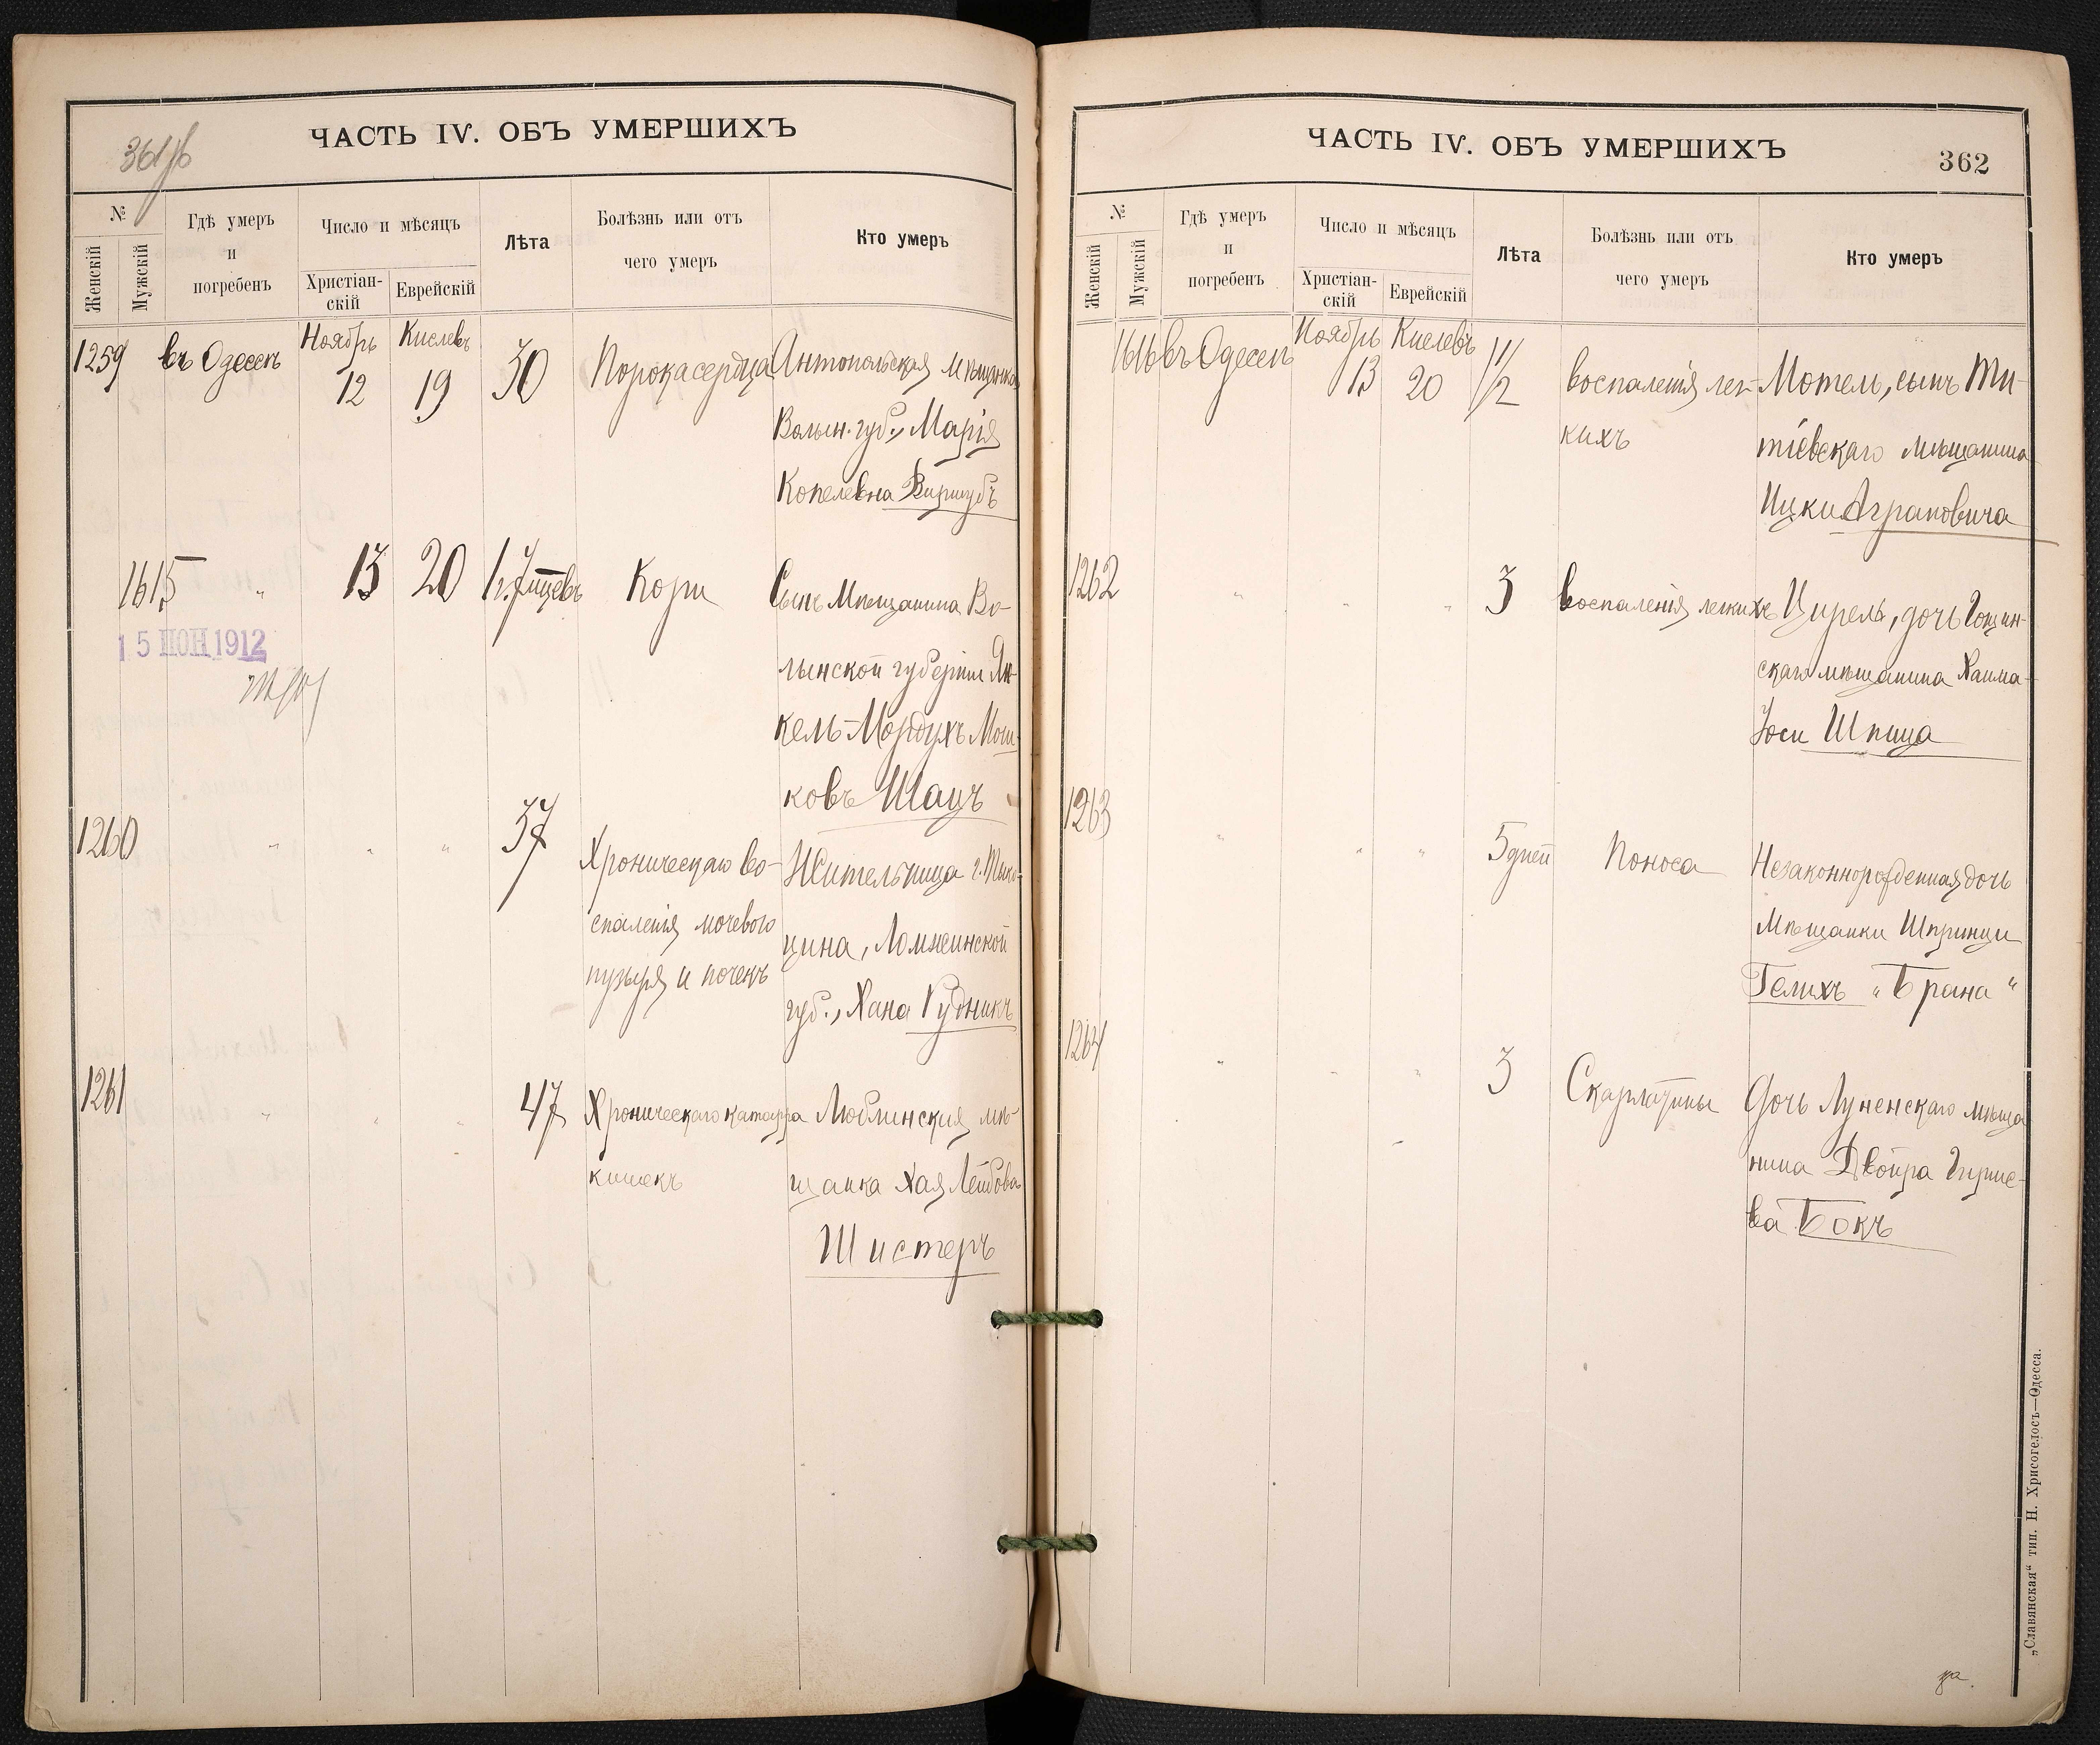 361 об
ЧАСТЬ IV. ОБЪ УМЕРШИХЪ
№
Женскій
Мужскій
Гдѣ умеръ
и
погребенъ
Число и мѣсяцъ
Христіан-
скій
Еврейскій
Лѣта
Болѣзнь или отъ
чего умеръ
Кто умеръ
1259 въ Одессѣ Ноябрь 12 Кислевъ 19 30 Порока сердца Антопольская мѣщанка
Волын. губ., Марія
Копелевна
1615 " 13 20 1 г. 7 мцевъ Кори Сынъ мѣщанина Во-
лынской губерніи Ян-
кель-Мордухъ Мош-
ковъ Шацъ
15 ІЮН 1912
1260 " " " 37 Хроническаго во- Жительница г. Тыко-
спаленія мочевого цина, Ломжинской
пузыря и почекъ губ., Хана Рудникъ
1261 " " " 47 Хроническаго катарра Люблинская мѣ-
кишекъ щанка Хая Лейбова
Шистеръ
ЧАСТЬ IV. ОБЪ УМЕРШИХЪ
362
№
Женскій
Мужскій
Гдѣ умеръ
и
погребенъ
Число и мѣсяцъ
Христіан-
скій
Еврейскій
Лѣта
Болѣзнь или отъ
чего умеръ
Кто умеръ
1616 въ Одессѣ Ноябрь 13 Кислевъ 20 1 1/2 воспаленія лег- Мотель, сынъ Ти-
кихъ тіевскаго мѣщанина
Ицки Аграновича
1262 " " " 3 воспаленія легкихъ Цирель, дочь Гощин-
скаго мѣщанина Хаима-
Іоси Шпица
1263 " " " 5 дней Поноса Незаконнорожденная дочь
Мѣщанки Шпринци
Гелихъ „Брана“
1264 " " " 3 Скарлатины Дочь Луненскаго мѣща
нина Двойра Гирше-
ва Бокъ
„Славянская“ тип. Н. Хрисогелосъ—Одесса.